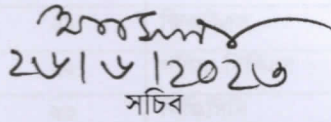 ২৬|৬|২০২৩
সচিব